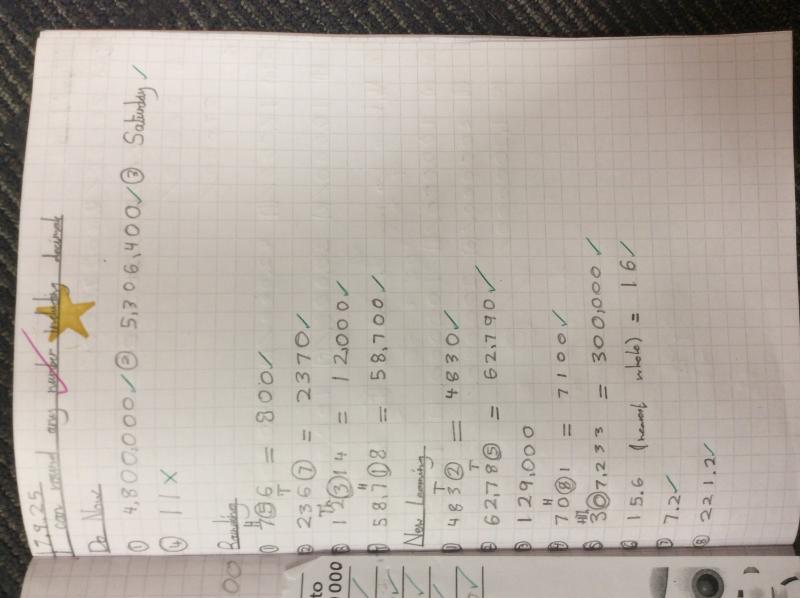 7.9.25
I can round any number including decimals
Do Now
① 4,800,000 ✓ ② 5,306,400 ✓ ③ Saturday ✓
④ 11 x
Rounding
H
① 756 = 800 ✓
T
② 2367 = 2370 ✓
Th
③ 12314 = 12,000 ✓
H
④ 58,708 = 58,700 ✓
New Learning
T
① 4832 = 4830 ✓
T
② 62,785 = 62,790 ✓
③ 129,000
H
④ 7081 = 7100 ✓
HTh
⑤ 307,233 = 300,000 ✓
⑥ 15.6 (nearest whole) = 16 ✓
⑦ 7.2 ✓
⑧ 221.2 ✓
00
to
000